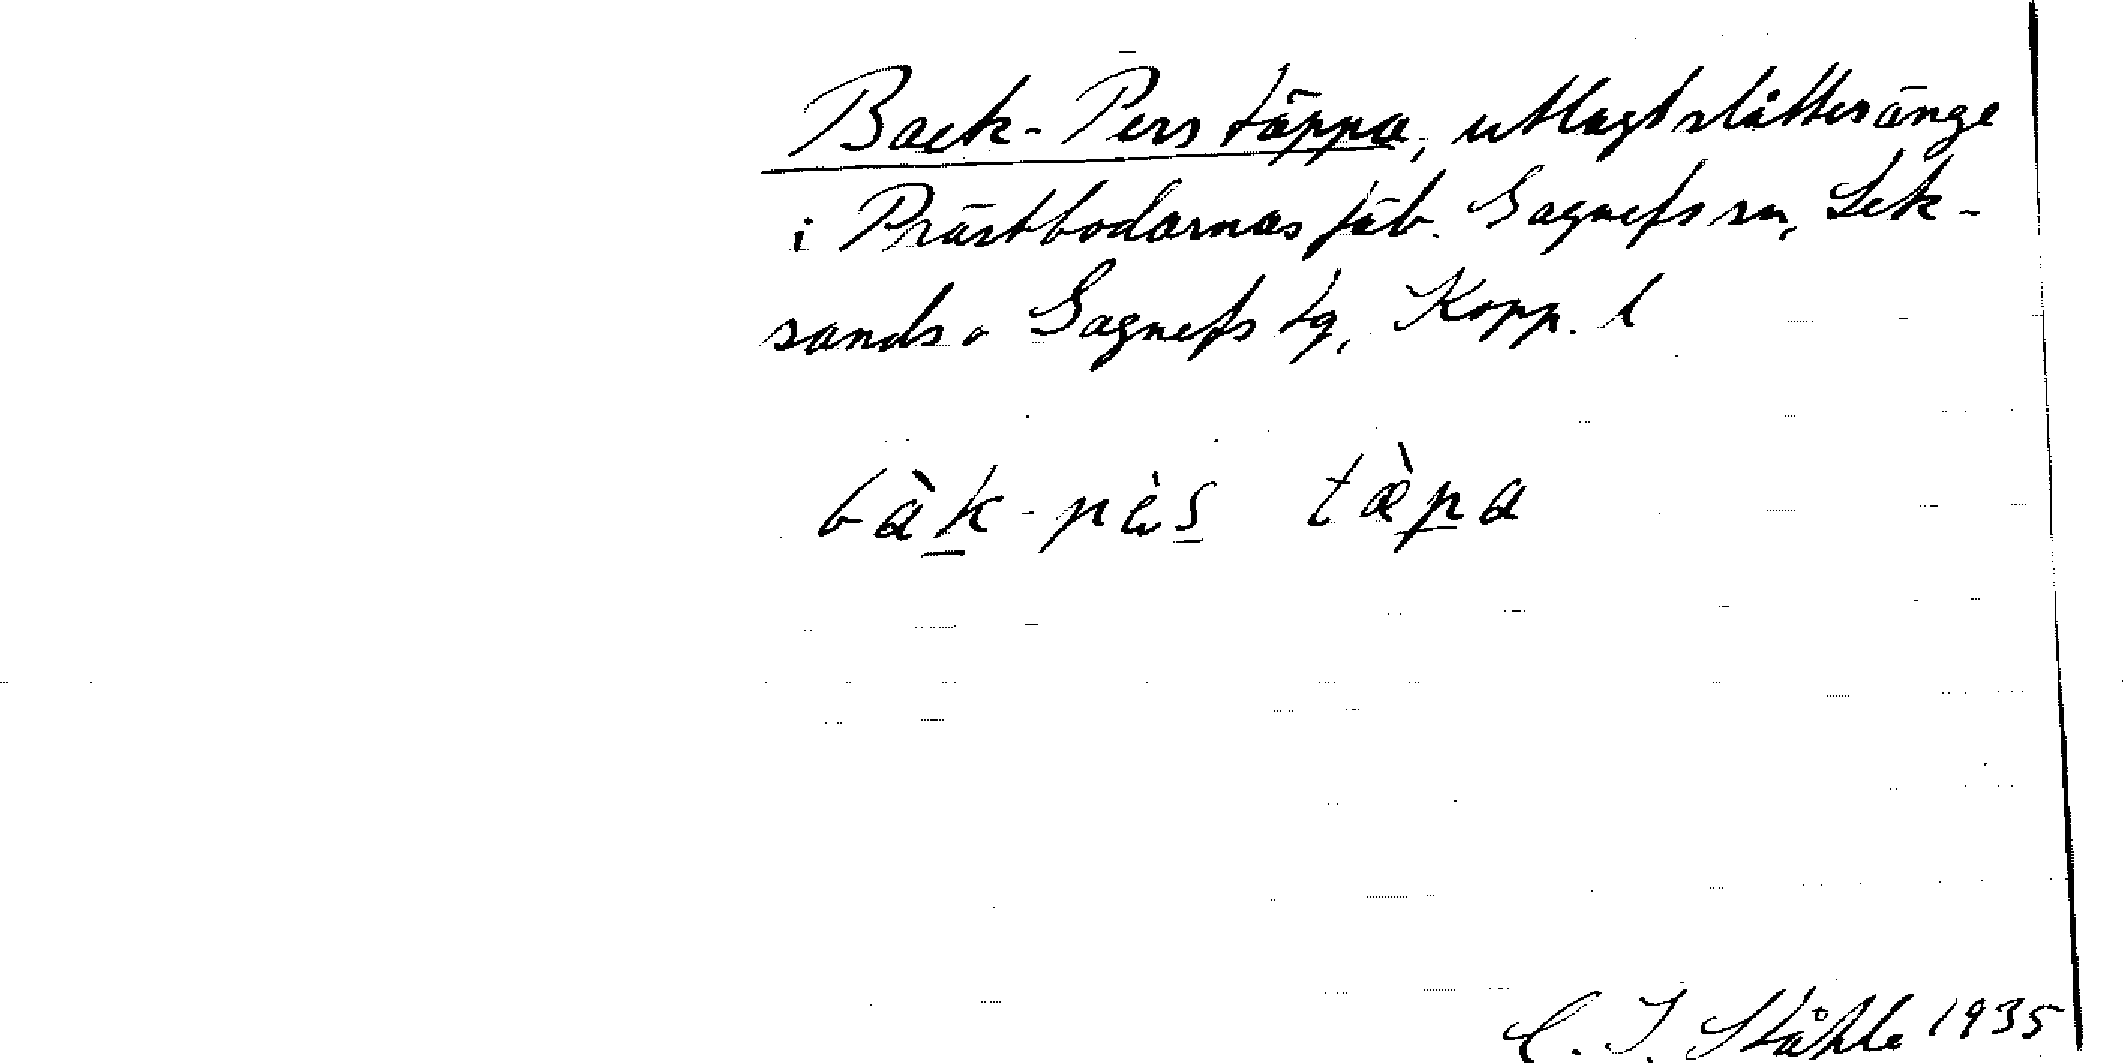 Back-Pers täppa, utlagt slåtteränge
i Prästbodarnas fäb. Gagnefs sn, Lek-
sands o Gagnefs tg, Kopp. l
bàk-pès tæ̀pa
C. I. Ståhle 1935